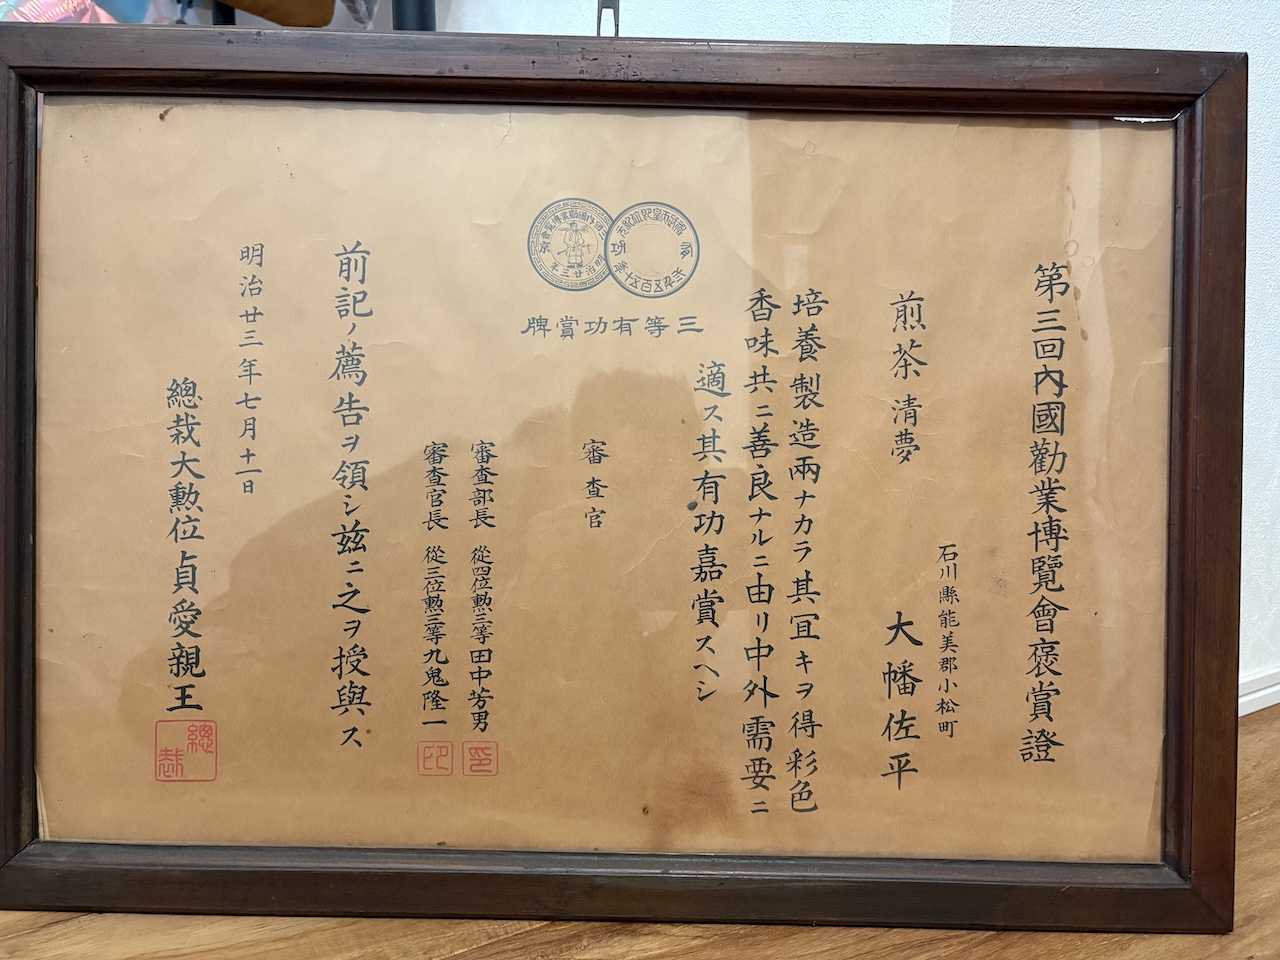 第三回內國勸業博覽會褒賞證
石川縣能美郡小松町
大幡佐平
煎茶 清夢
培養製造兩ナカラ其冝キヲ得彩色
香味共ニ善良ナルニ由リ中外需要ニ
適ス其有功嘉賞スヘシ
三等有功賞牌
審査官
審査部長 從四位勲三等田中芳男
審査官長 從三位勲三等九鬼隆一
前記ノ薦告ヲ領シ茲ニ之ヲ授與ス
明治廿三年七月十一日
總裁大勲位貞愛親王
總裁